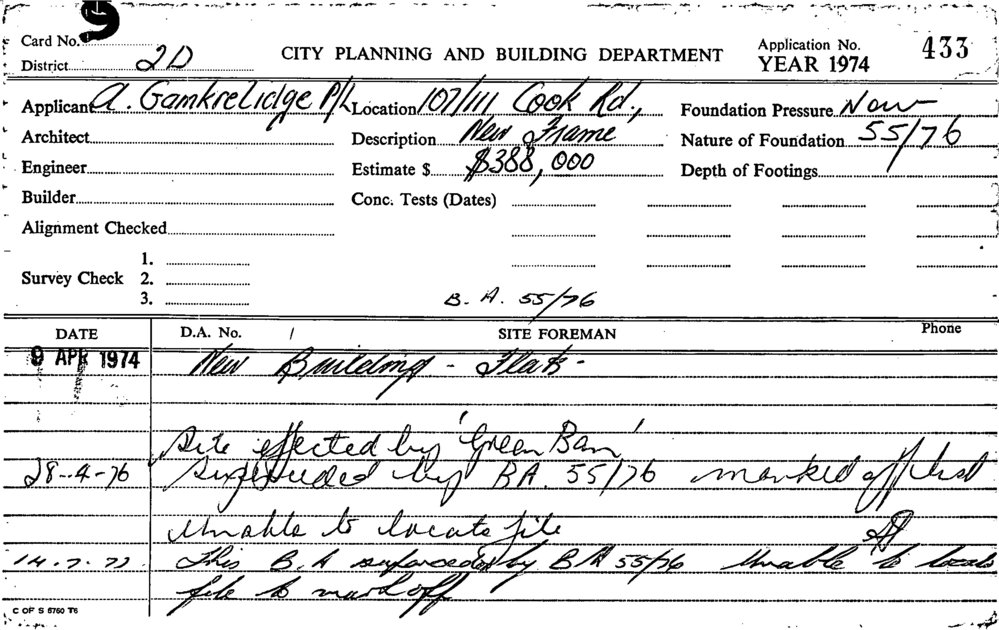 9
Card No.
District 2D
CITY PLANNING AND BUILDING DEPARTMENT
Application No. 433
YEAR 1974
Applicant A. Gamkrelidge P/L Location 107/111 Cook Rd., Foundation Pressure Now
Architect Description New Frame Nature of Foundation 55/76
Engineer Estimate $ $388,000 Depth of Footings
Builder Conc. Tests (Dates)
Alignment Checked
1.
Survey Check 2.
3. B.A. 55/76
DATE D.A. No. / SITE FOREMAN Phone
9 APR 1974 New Building - Flats -
Site effected by 'Green Ban'
28-4-76 Superseded by BA. 55/76 marked off list
Unable to locate file
14.7.77 This B.A superceded by BA 55/76 Unable to locate
file to mark off
C OF S 6760 T6